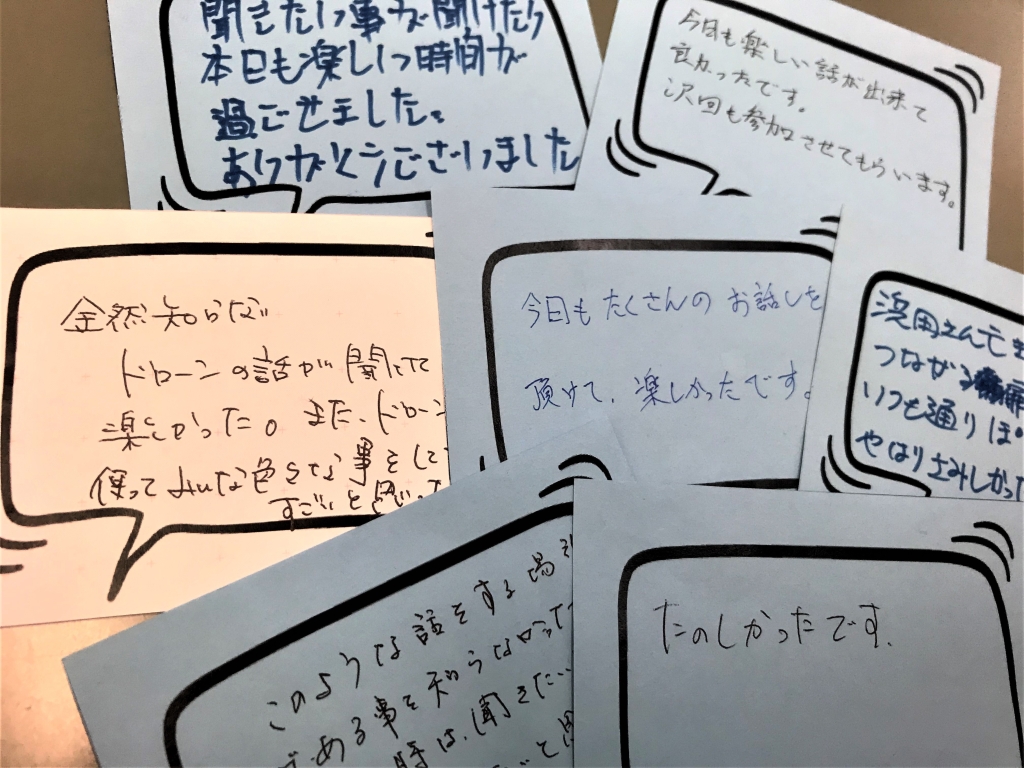 聞きたい事が聞けたり
本日も楽しい時間が
過ごせました。
ありがとうございました
今日も楽しい話が出来て
良かったです。
次回も参加させてもらいます。
全然知らない
ドローンの話が聞けて
楽しかった。また、ドローン
使ってみんな色々な事をして
すごいと思った
今日もたくさんのお話しを
頂けて、楽しかったです。
浜田さんでき
つながる
いつも通り
やはりさみしかった
このような話をする場
ある事を知らなかった
時は、聞きたい
と思
たのしかったです.